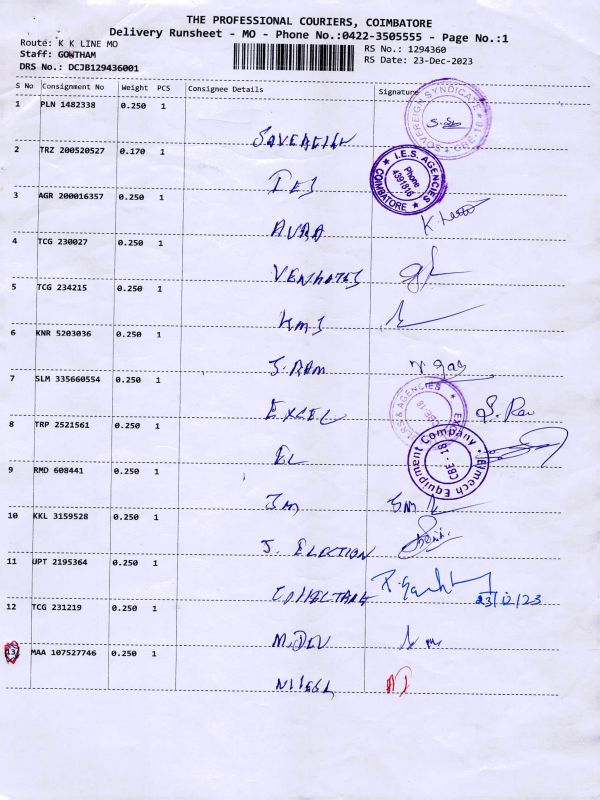 THE PROFESSIONAL COURIERS, COIMBATORE
Delivery Runsheet - MO - Phone No.:0422-3505555 - Page No.:1
Route: K K LINE MO
Staff: GOWTHAM
DRS No.: DCJB129436001
RS No.: 1294360
RS Date: 23-Dec-2023
S No Consignment No Weight PCS Consignee Details Signature
1 PLN 1482338 0.250 1
SOVEREIGN SYNDICATE
2 TRZ 200520527 0.170 1
IES
I.E.S. AGENCIES
Phone
4391816
COIMBATORE
3 AGR 200016357 0.250 1
AURA
4 TCG 230027 0.250 1
VENKATES
5 TCG 234215 0.250 1
KMS
6 KNR 5203036 0.250 1
S. RAM
7 SLM 335660554 0.250 1
EXCEL
& AGENCIES
CBE - 18
S. Rav
8 TRP 2521561 0.250 1
EL
Elmech Equipment Company
CBE - 18
9 RMD 608441 0.250 1
SM
10 KKL 3159528 0.250 1
J. ELECTION
11 UPT 2195364 0.250 1
23/12/23
12 TCG 231219 0.250 1
M. DEV
13 MAA 107527746 0.250 1